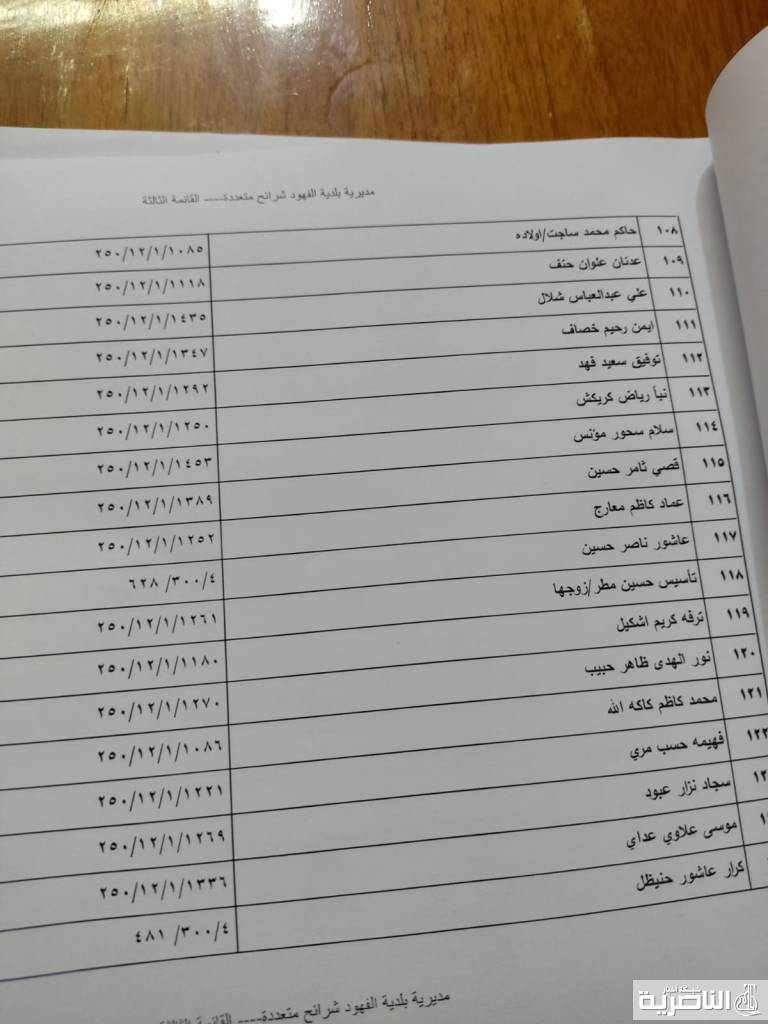 مديرية بلدية الفهود شرائح متعددة---- القائمة الثالثة
١٠٨ حاكم محمد ساجت/اولاده ٢٥٠/١٢/١/١٠٨٥
١٠٩ عدنان علوان حنف ٢٥٠/١٢/١/١١١٨
١١٠ علي عبدالعباس شلال ٢٥٠/١٢/١/١٤٣٥
١١١ ايمن رحيم خصاف ٢٥٠/١٢/١/١٣٤٧
١١٢ توفيق سعيد فهد ٢٥٠/١٢/١/١٢٩٢
١١٣ نبأ رياض كريكش ٢٥٠/١٢/١/١٢٥٠
١١٤ سلام سحور مؤنس ٢٥٠/١٢/١/١٤٥٣
١١٥ قصي ثامر حسين ٢٥٠/١٢/١/١٣٨٩
١١٦ عماد كاظم معارج ٢٥٠/١٢/١/١٢٥٢
١١٧ عاشور ناصر حسين ٦٢٨ /٣٠٠/٤
١١٨ تأسيس حسين مطر/زوجها ٢٥٠/١٢/١/١٢٦١
١١٩ ترفه كريم اشكيل ٢٥٠/١٢/١/١١٨٠
١٢٠ نور الهدى ظاهر حبيب ٢٥٠/١٢/١/١٢٧٠
١٢١ محمد كاظم كاكه الله ٢٥٠/١٢/١/١٠٨٦
١٢٢ فهيمه حسب مري ٢٥٠/١٢/١/١٢٢١
سجاد نزار عبود ٢٥٠/١٢/١/١٢٦٩
موسى علاوي عداي ٢٥٠/١٢/١/١٣٣٦
كرار عاشور حنيظل ٤٨١ /٣٠٠/٤
مديرية بلدية الفهود شرائح متعددة---- القائمة الثالثة
شبكة أخبار
الناصرية